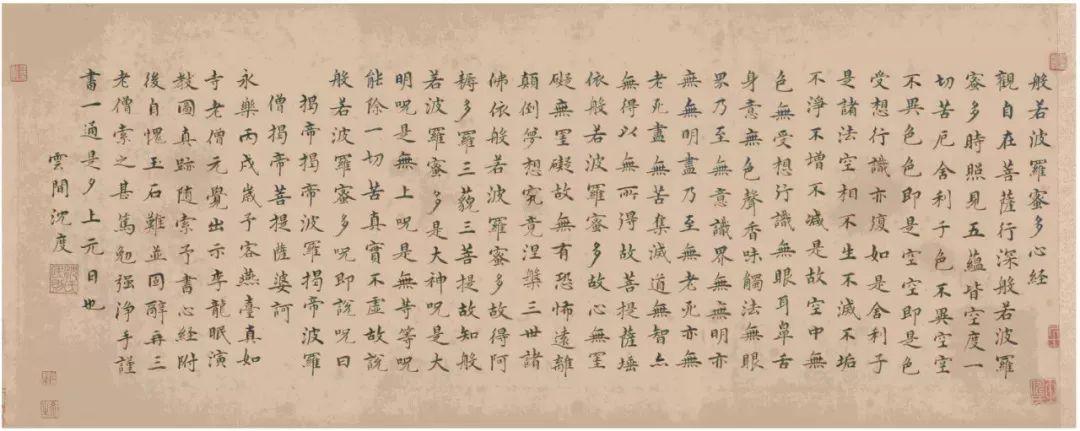 般若波羅蜜多心經
觀自在菩薩行深般若波羅
蜜多時照見五蘊皆空度一
切苦厄舍利子色不異空空
不異色色即是空空即是色
受想行識亦復如是舍利子
是諸法空相不生不滅不垢
不淨不增不減是故空中無
色無受想行識無眼耳鼻舌
身意無色聲香味觸法無眼
界乃至無意識界無無明亦
無無明盡乃至無老死亦無
老死盡無苦集滅道無智亦
無得以無所得故菩提薩埵
依般若波羅蜜多故心無罣
礙無罣礙故無有恐怖遠離
顛倒夢想究竟涅槃三世諸
佛依般若波羅蜜多故得阿
耨多羅三藐三菩提故知般
若波羅蜜多是大神呪是大
明呪是無上呪是無等等呪
能除一切苦真實不虛故說
般若波羅蜜多呪即說呪曰
揭帝揭帝波羅揭帝波羅
僧揭帝菩提薩婆訶
永樂丙戌歲予客燕臺真如
寺老僧元覺出示李龍眠演
教圖真跡随索予書心經附
後自愧玉石難並固辭再三
老僧索之甚篤勉强淨手謹
書一通是夕上元日也
雲間沈度